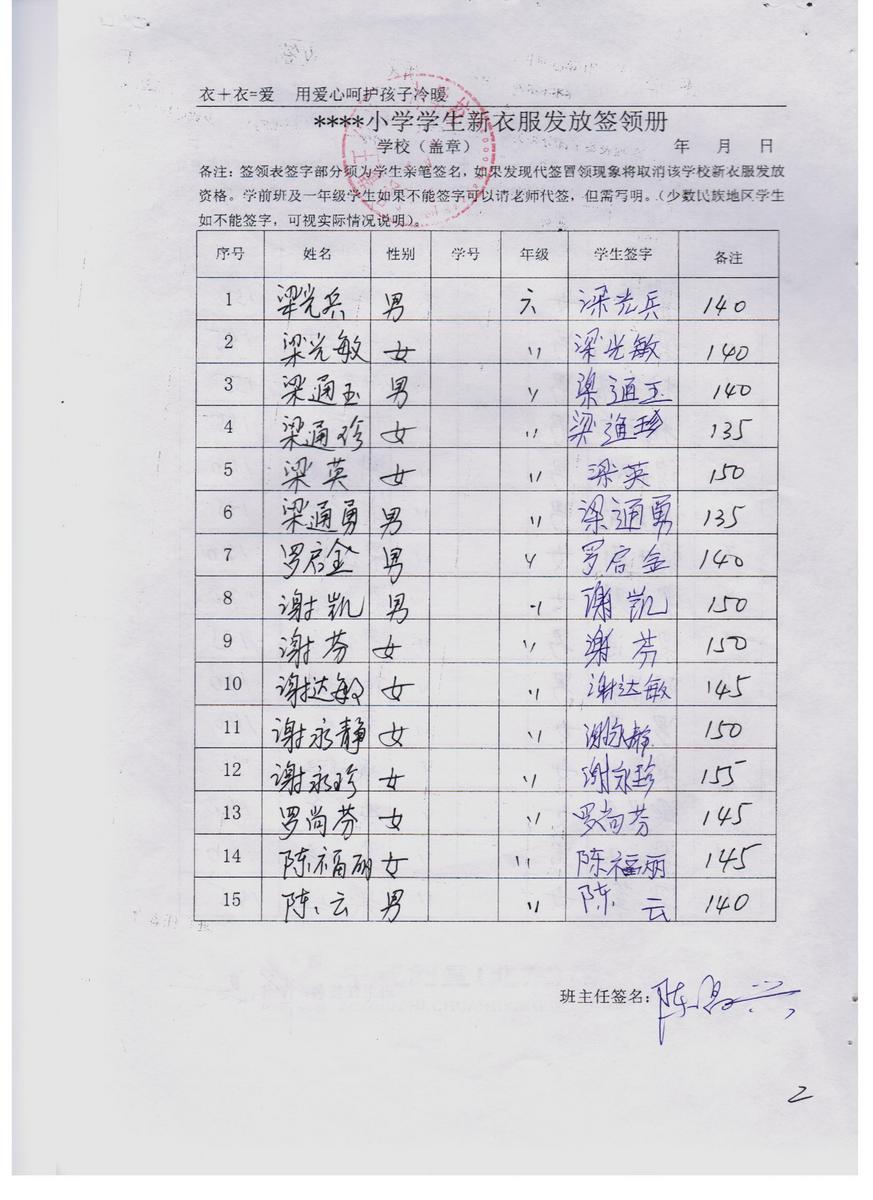 衣+衣=爱 用爱心呵护孩子冷暖
****小学学生新衣服发放签领册
学校（盖章） 年 月 日
备注：签领表签字部分须为学生亲笔签名，如果发现代签冒领现象将取消该学校新衣服发放
资格。学前班及一年级学生如果不能签字可以请老师代签，但需写明。（少数民族地区学生
如不能签字，可视实际情况说明）。
序号 姓名 性别 学号 年级 学生签字 备注
1 梁光兵 男 六 梁光兵 140
2 梁光敏 女 〃 梁光敏 140
3 梁通玉 男 〃 梁通玉 140
4 梁通珍 女 〃 梁通珍 135
5 梁英 女 〃 梁英 150
6 梁通勇 男 〃 梁通勇 135
7 罗启金 男 〃 罗启金 140
8 谢凯 男 〃 谢凯 150
9 谢芬 女 〃 谢芬 150
10 谢达敏 女 〃 谢达敏 145
11 谢永静 女 〃 谢永静 150
12 谢永珍 女 〃 谢永珍 155
13 罗尚芬 女 〃 罗尚芬 145
14 陈福丽 女 〃 陈福丽 145
15 陈云 男 〃 陈云 140
班主任签名：陈
2